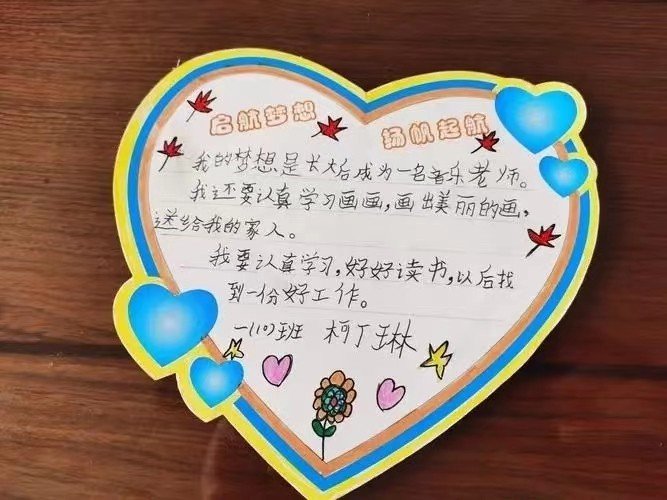 启航梦想 扬帆起航
我的梦想是长大后成为一名音乐老师。
我还要认真学习画画，画出美丽的画，
送给我的家人。
我要认真学习，好好读书，以后找
到一份好工作。
一(10)班 柯丁琳